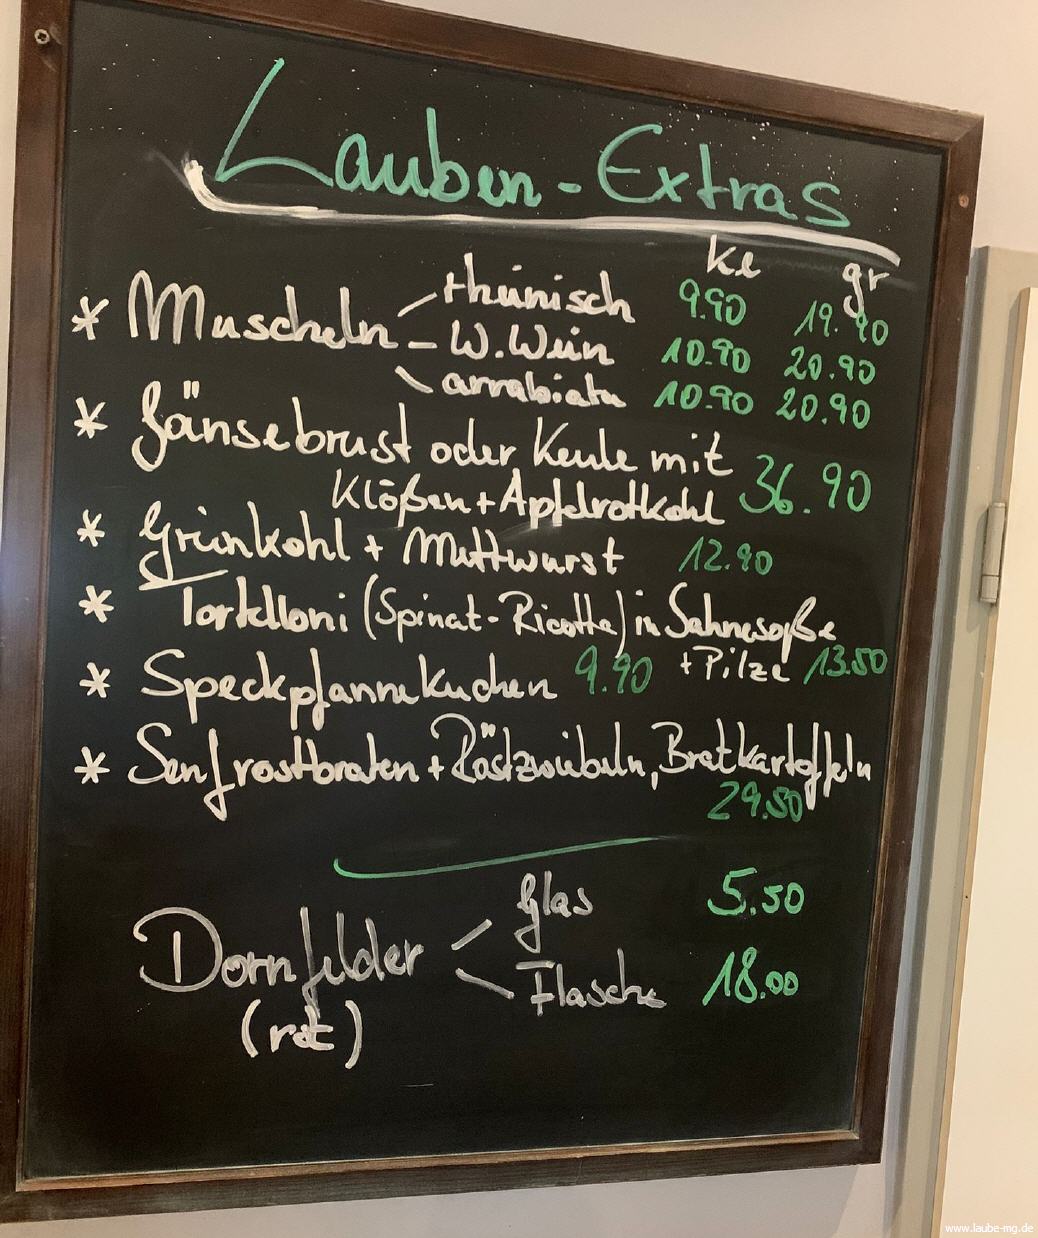 Lauben-Extras
kl gr
* Muscheln rheinisch 9.90 19.90
- W.Wein 10.90 20.90
arrabiata 10.90 20.90
* Gänsebrust oder Keule mit
Klößen + Apfelrotkohl 36.90
* Grünkohl + Mettwurst 12.90
* Tortelloni (Spinat-Ricotta) in Sahnesoße
+ Pilze 13.50
* Speckpfannekuchen 9.90
* Senfrostbraten + Röstzwiebeln, Bratkartoffeln
29.50
Dornfelder Glas 5.50
Flasche 18.00
(rot)
www.laube-mg.de